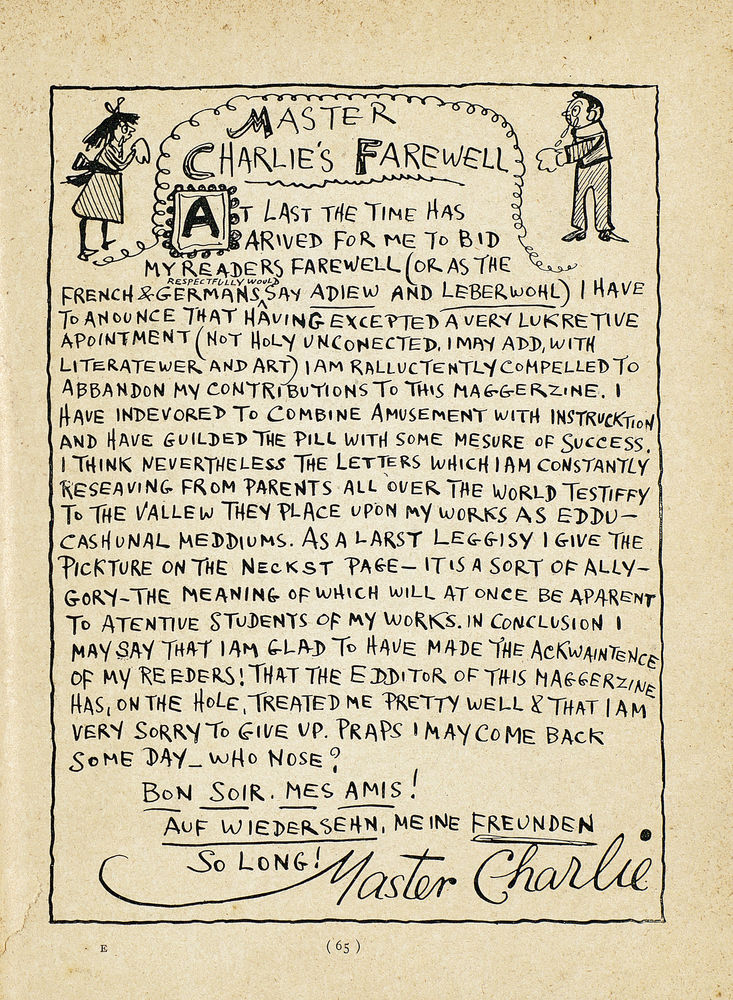 MASTER
CHARLIE'S FAREWELL
AT LAST THE TIME HAS
ARIVED FOR ME TO BID
MY READERS FAREWELL (OR AS THE
RESPECTFULLY WOULD
FRENCH & GERMANS ^ SAY ADIEW AND LEBERWOHL) I HAVE
TO ANOUNCE THAT HAVING EXCEPTED A VERY LUKRETIVE
APOINTMENT (NOT HOLY UNCONECTED, I MAY ADD, WITH
LITERATEWER AND ART) I AM RALLUCTENTLY COMPELLED TO
ABBANDON MY CONTRIBUTIONS TO THIS MAGGERZINE. I
HAVE INDEVORED TO COMBINE AMUSEMENT WITH INSTRUCKTION
AND HAVE GUILDED THE PILL WITH SOME MESURE OF SUCCESS.
I THINK NEVERTHELESS THE LETTERS WHICH I AM CONSTANTLY
RESEAVING FROM PARENTS ALL OVER THE WORLD TESTIFFY
TO THE VALLEW THEY PLACE UPON MY WORKS AS EDDU-
CASHUNAL MEDDIUMS. AS A LARST LEGGISY I GIVE THE
PICKTURE ON THE NECKST PAGE — IT IS A SORT OF ALLY-
GORY — THE MEANING OF WHICH WILL AT ONCE BE APARENT
TO ATENTIVE STUDENTS OF MY WORKS. IN CONCLUSION I
MAY SAY THAT I AM GLAD TO HAVE MADE THE ACKWAINTENCE
OF MY REEDERS! THAT THE EDDITOR OF THIS MAGGERZINE
HAS, ON THE HOLE, TREATED ME PRETTY WELL & THAT I AM
VERY SORRY TO GIVE UP. PRAPS I MAY COME BACK
SOME DAY — WHO NOSE?
BON SOIR. MES AMIS!
AUF WIEDERSEHN, MEINE FREUNDEN
SO LONG!
Master Charlie
E
(65)